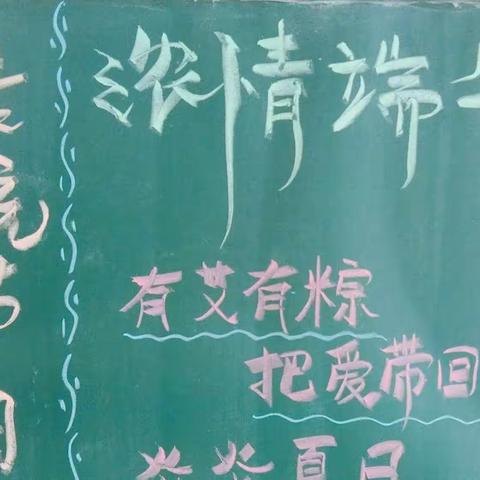 浓情端
有艾有粽
把爱带回
炎炎夏日